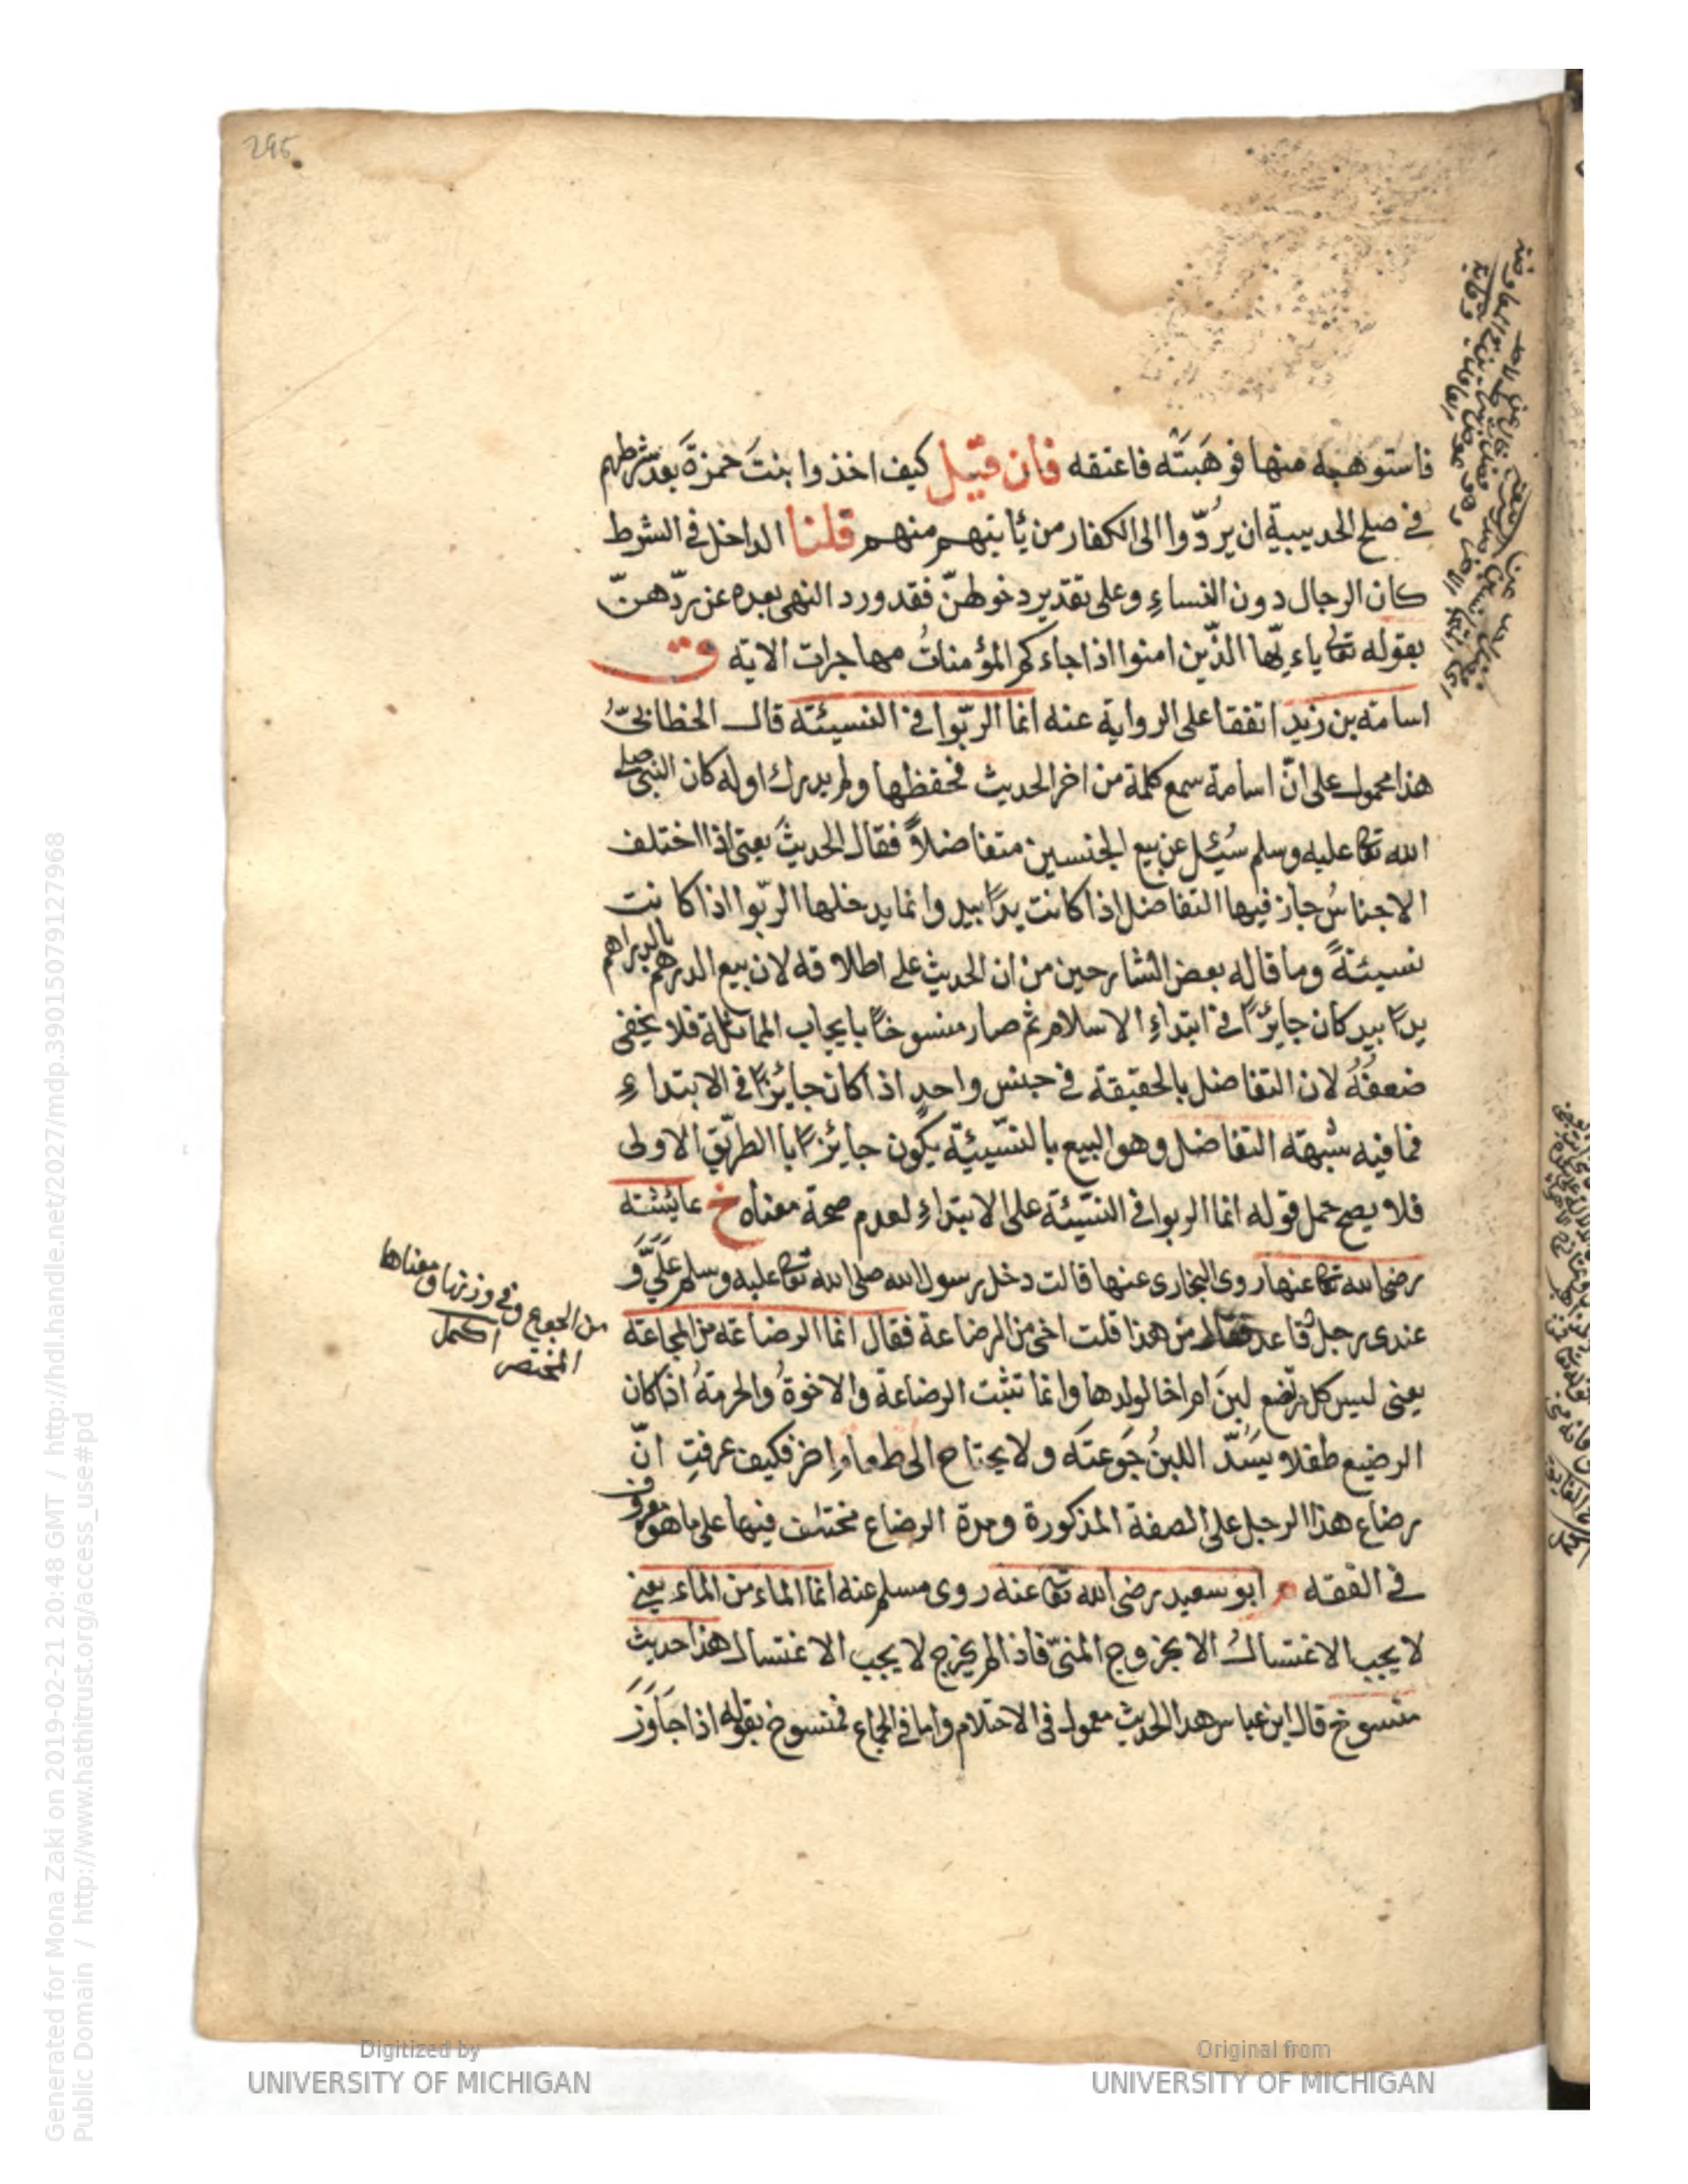 295
فاستوهبه منها فوهَبَتْه فاعتقه فان قيل كيف اخذوا بنتَ حمزةَ بعد شرطهم
في صلح الحديبية ان يردّوا الى الكفار من يأتيهم منهم قلنا الداخل في الشرط
كان الرجال دون النساءِ وعلى تقدير دخولهنّ فقد ورد النهى بعده عن ردّهنّ
بقوله تعا ياء يّها الذّين امنوا اذا جاءكم المؤمناتُ مهاجرات الاية ق
اسامة بن زيد اتفقا على الرواية عنه انما الربّوا في النسيئة قال الخطابيّ
هذا محمول على انّ اسامة سمع كلمة من اخر الحديث فحفظها ولم يدرك اوله كان النبى صلى
الله تعا عليه وسلم سُئِل عن بيع الجنسين متفاضلاً فقال الحديثَ يعنى اذا اختلف
الاجناسُ جاز فيها التفاضل اذا كانت يدًا بيد وانما يدخلها الربّوا اذا كانت
نسيئةً وما قاله بعض الشارحين من ان الحديث على اطلاقه لان بيع الدرهم بالدراهم
يدًا بيد كان جايزًا في ابتداءِ الاسلام ثم صار منسوخًا بايجاب المماثلة فلا يخفى
ضعفُهُ لان التفاضل بالحقيقة في جنس واحد اذا كان جايزًا في الابتداءِ
فما فيه شبهة التفاضل وهو البيع بالنسّيئة يكون جايزًا باالطريق الاولى
فلا يصح حمل قوله انما الربوا في النسّيئة على الابتداءِ لعدم صحة معناه خ عايشة
رضى الله تعا عنها روى البخارى عنها قالت دخل رسول الله صلى الله تعا عليه وسلم علَيَّ وَ
عندى رجل قاعد فقال من هذا قلت اخى من الرضاعة فقال انما الرضاعة من المجاعة
يعنى ليس كل مرتضع لبنَ ام اخا لولدها وانما تثبت الرضاعة والاخوةُ والحرمةُ اذا كان
الرضيع طفلا ويَسُدّ اللبنُ جَوعتَه ولا يحتاج الى طعام اخر فكيف عرفتِ انّ
رضاع هذا الرجل على الصفة المذكورة ومدة الرضاع مختلف فيها على ما هو معروف
في الفقه م ابو سعيد رضى الله تعا عنه روى مسلم عنه انما الماء من الماء يعنى
لا يجب الاغتسالُ الا بخروج المنىّ فاذا لم يخرج لا يجب الاغتسال هذا حديث
منسوخ قال ابن عباس هذا الحديث معمول في الاحتلام واما في الجماع فمنسوخ بقوله اذا جاوَزَ
من الجوع وفي وزنها ومعناها
المختصر اكمل
Generated for Mona Zaki on 2019-02-21 20:48 GMT / http://hdl.handle.net/2027/mdp.39015079127968
Public Domain / http://www.hathitrust.org/access_use#pd
Digitized by
UNIVERSITY OF MICHIGAN
Original from
UNIVERSITY OF MICHIGAN